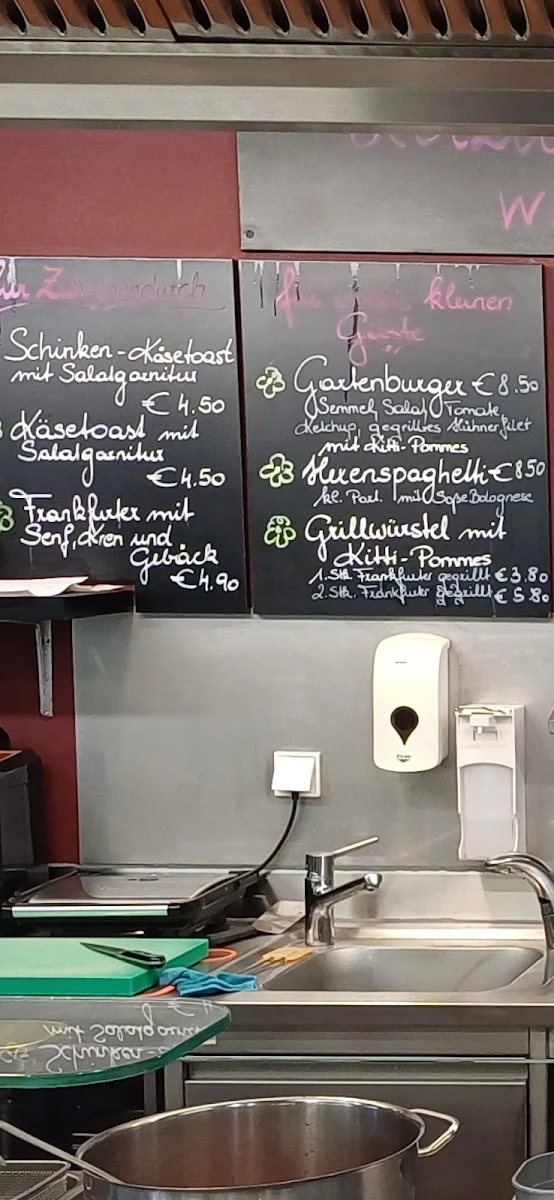 W
Schinken-Käsetoast
mit Salatgarnitur
€ 4.50
Käsetoast mit
Salatgarnitur
€ 4.50
Frankfurter mit
Senf, Kren und
Gebäck
€ 4.90
kleinen
Gäste
Gartenburger € 8.50
Semmel, Salat, Tomate,
Ketchup, gegrilltes Hühnerfilet
mit Kitti-Pommes
Hexenspaghetti € 8.50
kl. Port. mit Soße Bolognese
Grillwürstel mit
Kitti-Pommes
1. Stk. Frankfurter gegrillt € 3.80
2. Stk. Frankfurter gegrillt € 5.80